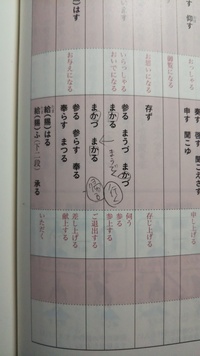 仰す
はす
おっしゃる
御覧になる
お思いになる
いらっしゃる
おいでになる
お与えになる
奏す 啓す 聞こえさす
申す 聞こゆ
存ず
参る まうづ まかづ
まかる
まかづ
まかる
参る 参らす 奉る
奉らす まつる
給(賜)はる
給(賜)ふ(下二段) 承る
申し上げる
存じ上げる
伺う
参る
参上する
ご退出する
差し上げる
献上する
いただく